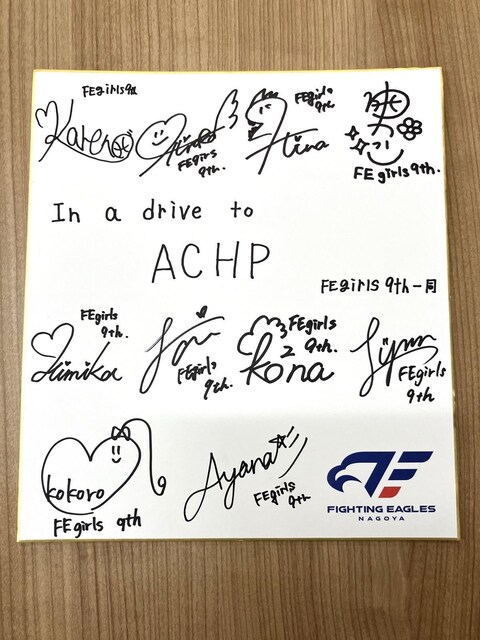 FEgirls 9th
Karen
FEgirls
9th.
FEgirls
9th.
Hina
FEgirls 9th.
In a drive to
ACHP
FEgirls 9th一同
FEgirls
9th.
Fumika
FEgirls
9th.
FEgirls
9th.
Kona
FEgirls
9th
kokoro
FEgirls 9th
Ayana
FEgirls
9th
FIGHTING EAGLES
NAGOYA